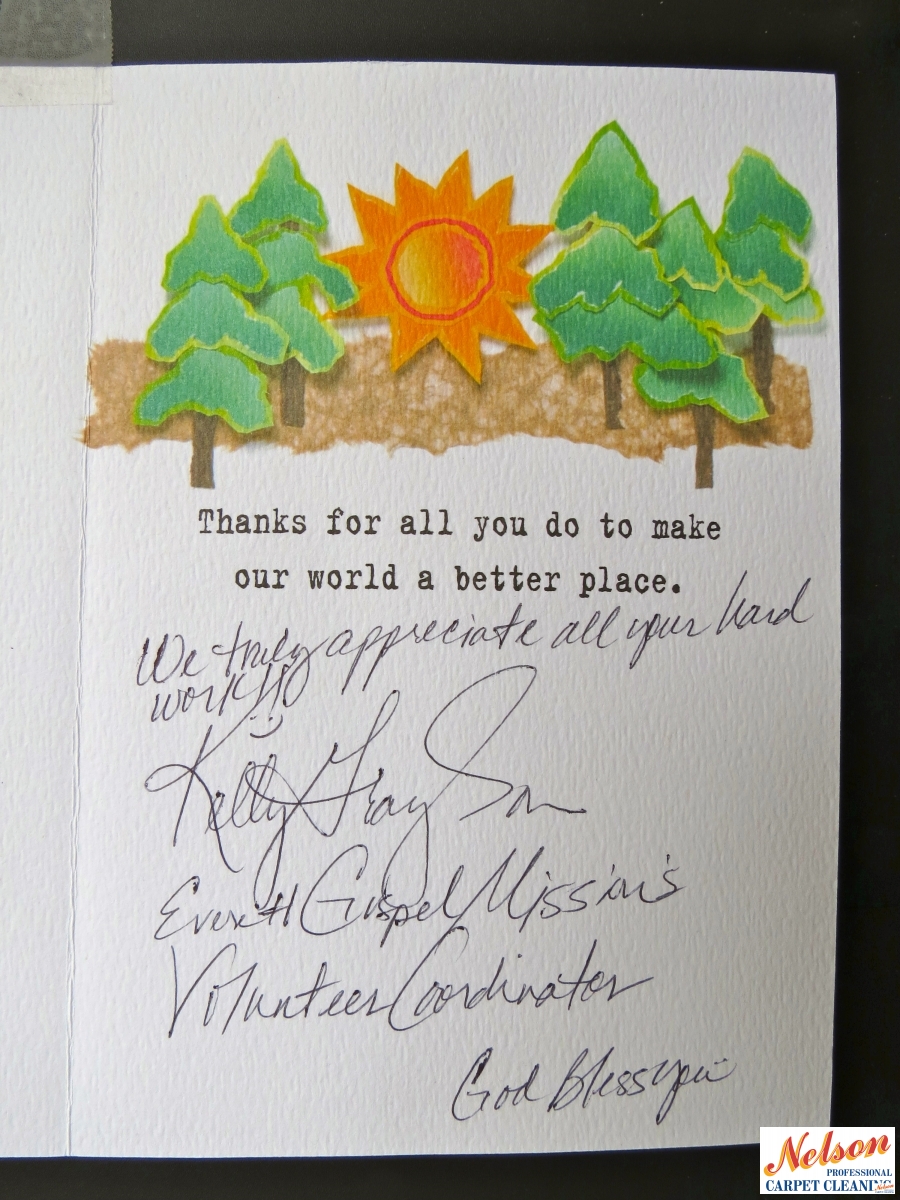 Thanks for all you do to make
our world a better place.
We truly appreciate all your hard
work!!
Kelly Gray
Everett Gospel Mission's
Volunteer Coordinator
God Bless you
Nelson
PROFESSIONAL
CARPET CLEANING
Nelson